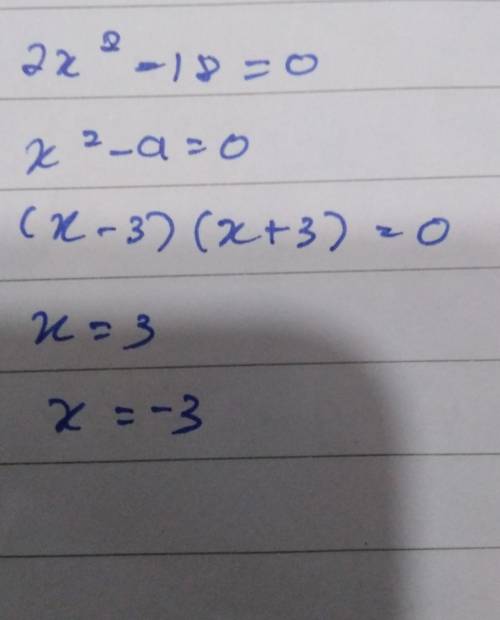 2x² -18 = 0
x² - 9 = 0
(x - 3) (x + 3) = 0
x = 3
x = -3